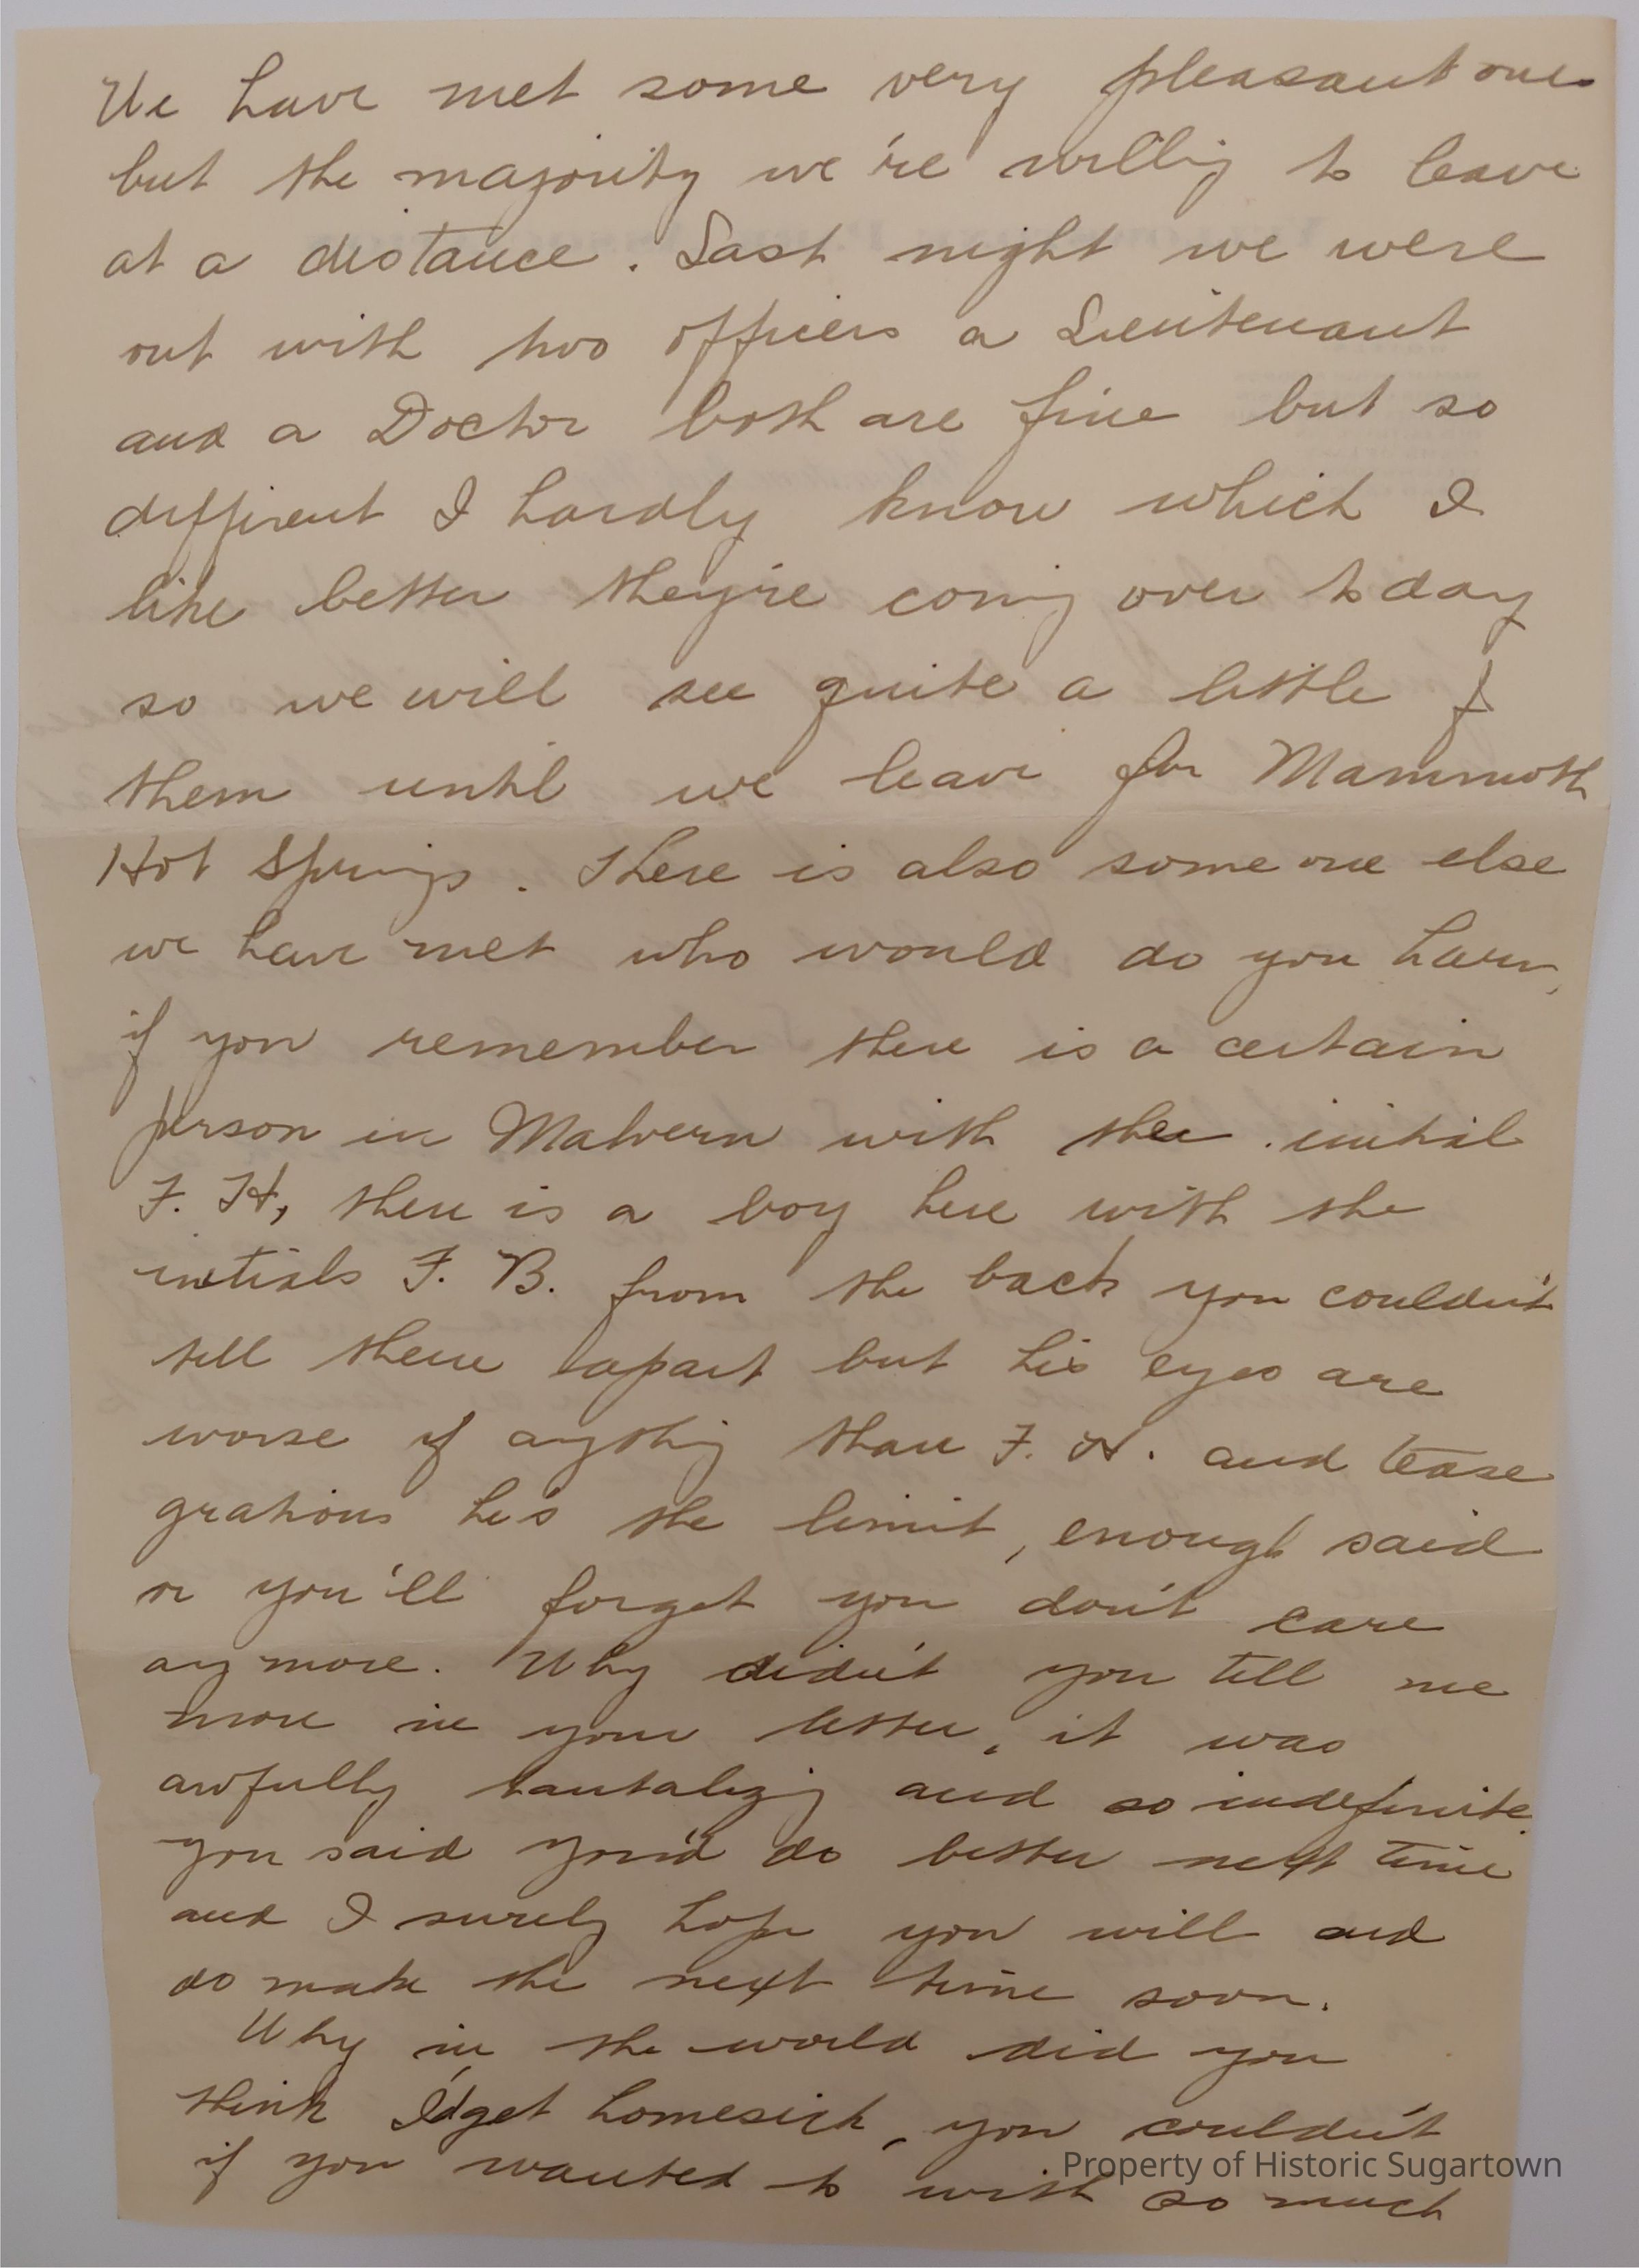 We have met some very pleasant ones
but the majority we're willing to leave
at a distance. Last night we were
out with two officers a Lieutenant
and a Doctor both are fine but so
different I hardly know which I
like better they're coming over today
so we will see quite a little of
them until we leave for Mammoth
Hot Springs. There is also some one else
we have met who would do you harm,
if you remember there is a certain
person in Malvern with the initial
F. H, there is a boy here with the
initials F. B. from the back you couldn't
tell them apart but his eyes are
worse if anything than F. H. and tease
gratious he's the limit, enough said
or you'll forget you don't care
any more. Why didn't you tell me
more in your letter, it was
awfully tantalizing and so indefinite.
you said you'd do better next time
and I surely hope you will and
do make the next time soon.
Why in the world did you
think I'd get homesick, you couldn't
if you wanted to with so much
Property of Historic Sugartown